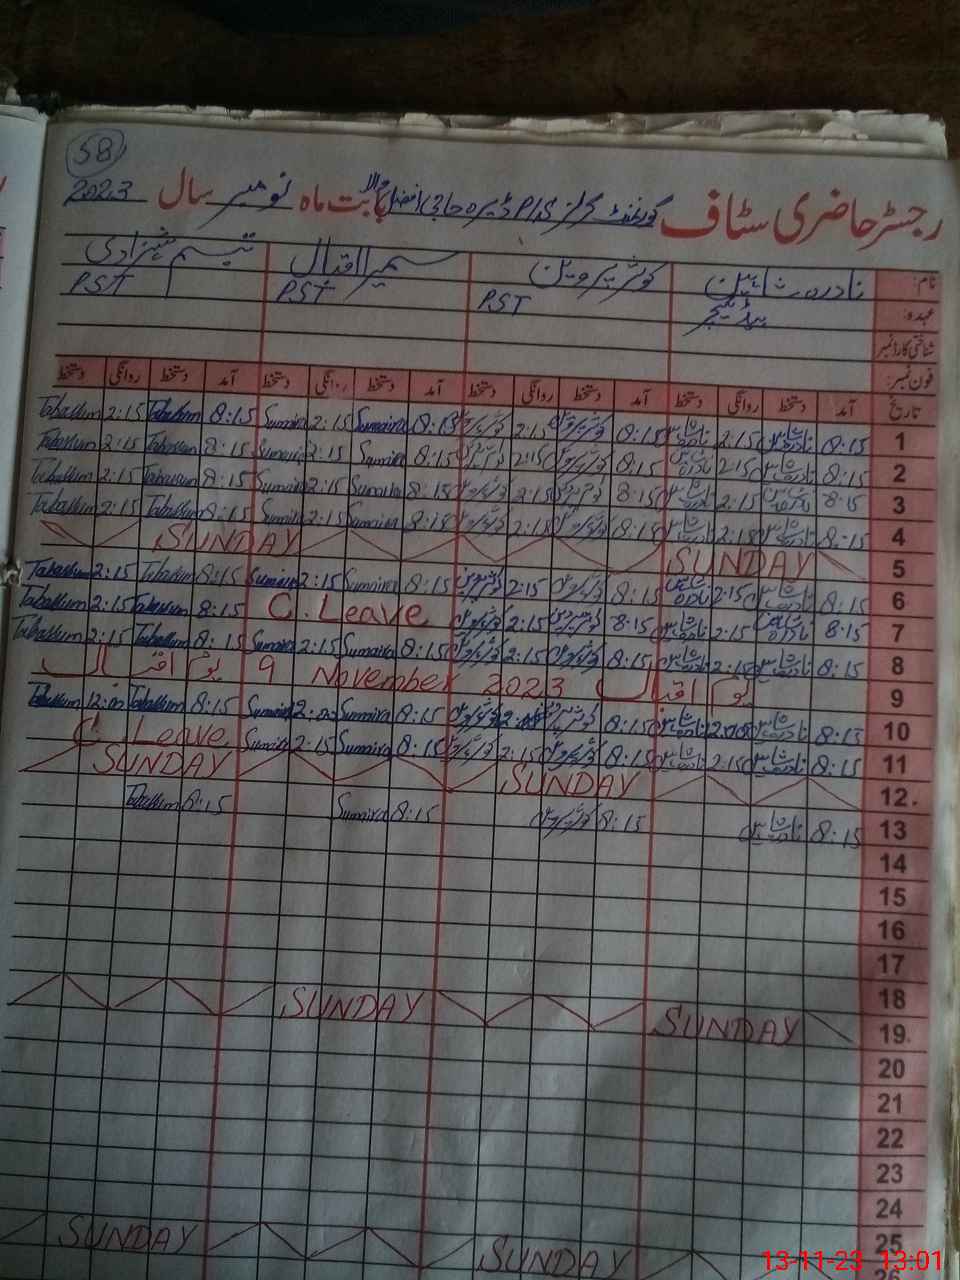 58
رجسٹر حاضری سٹاف گورنمنٹ گرلز P/S ڈیرہ حاجی افضل والا بابت ماہ نومبر سال 2023
نام: نادرہ شاہین کوثر پروین سمیرا اقبال تبسم شہزادی
عہدہ: ہیڈ ٹیچر PST PST PST
شناختی کارڈ نمبر
فون نمبر:
تاریخ آمد دستخط روانگی دستخط آمد دستخط روانگی دستخط آمد دستخط روانگی دستخط آمد دستخط روانگی دستخط
1 8:15 نادرہ شاہین 2:15 نادرہ شاہین 8:15 کوثر پروین 2:15 کوثر پروین 8:15 Sumaira 2:15 Sumaira 8:15 Tabassum 2:15 Tabassum
2 8:15 نادرہ شاہین 2:15 نادرہ شاہین 8:15 کوثر پروین 2:15 کوثر پروین 8:15 Sumaira 2:15 Sumaira 8:15 Tabassum 2:15 Tabassum
3 8:15 نادرہ شاہین 2:15 نادرہ شاہین 8:15 کوثر پروین 2:15 کوثر پروین 8:15 Sumaira 2:15 Sumaira 8:15 Tabassum 2:15 Tabassum
4 8:15 نادرہ شاہین 2:15 نادرہ شاہین 8:15 کوثر پروین 2:15 کوثر پروین 8:15 Sumaira 2:15 Sumaira 8:15 Tabassum 2:15 Tabassum
5 SUNDAY SUNDAY
6 8:15 نادرہ شاہین 2:15 نادرہ شاہین 8:15 کوثر پروین 2:15 کوثر پروین 8:15 Sumaira 2:15 Sumaira 8:15 Tabassum 2:15 Tabassum
7 8:15 نادرہ شاہین 2:15 نادرہ شاہین 8:15 کوثر پروین 2:15 کوثر پروین C. Leave 8:15 Tabassum 2:15 Tabassum
8 8:15 نادرہ شاہین 2:15 نادرہ شاہین 8:15 کوثر پروین 2:15 کوثر پروین 8:15 Sumaira 2:15 Sumaira 8:15 Tabassum 2:15 Tabassum
9 یوم اقبال 9 November 2023 یوم اقبال
10 8:15 نادرہ شاہین 12:00 نادرہ شاہین 8:15 کوثر پروین کوثر پروین 8:15 Sumaira Sumaira 8:15 Tabassum 12:00 Tabassum
11 8:15 نادرہ شاہین 2:15 نادرہ شاہین 8:15 کوثر پروین 2:15 کوثر پروین 8:15 Sumaira 2:15 Sumaira C. Leave
12. SUNDAY SUNDAY
13 8:15 نادرہ شاہین 8:15 کوثر پروین 8:15 Sumaira 8:15 Tabassum
14
15
16
17
18
19. SUNDAY SUNDAY
20
21
22
23
24
25
SUNDAY SUNDAY
13-11-23 13:01